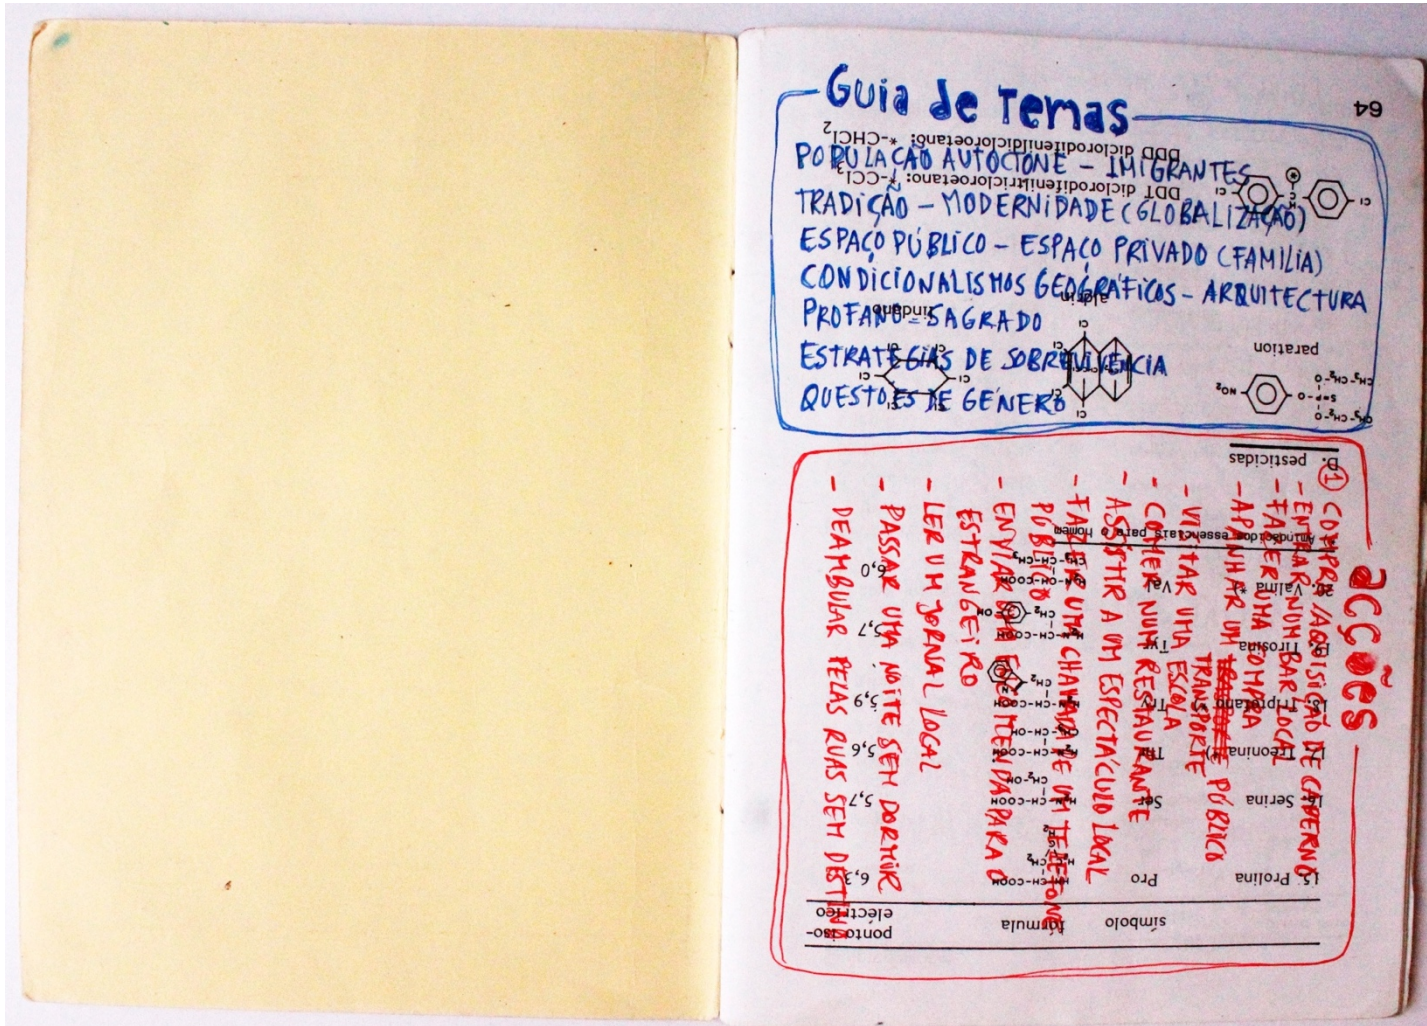 Guia de Temas
POPULAÇÃO AUTOCTONE – IMIGRANTES
TRADIÇÃO – MODERNIDADE (GLOBALIZAÇÃO)
ESPAÇO PÚBLICO – ESPAÇO PRIVADO (FAMILIA)
CONDICIONALISMOS GEOGRÁFICOS – ARQUITECTURA
PROFANO – SAGRADO
ESTRATÉGIAS DE SOBREVIVÊNCIA
QUESTÕES DE GÉNERO
acções
① COMPRA/AQUISIÇÃO DE CADERNO
- ENTRAR NUM BAR LOCAL
- FAZER UMA COMPRA
- APANHAR UM TRANSPORTE PÚBLICO
- VISITAR UMA ESCOLA
- COMER NUM RESTAURANTE
- ASSISTIR A UM ESPECTÁCULO LOCAL
- FAZER UMA CHAMADA DE UM TELEFONE
PÚBLICO
- ENVIAR UMA ENCOMENDA PARA O
ESTRANGEIRO
- LER UM JORNAL LOCAL
- PASSAR UMA NOITE SEM DORMIR
- DEAMBULAR PELAS RUAS SEM DESTINO
64
DDD diclorodifenildicloroetano: *-CHCl2
DDT diclorodifeniltricloroetano: *-CCl3
aldrin
lindano
paration
D. pesticidas
* Aminoácidos essenciais para o homem
20. Valina *) Val 6,0
19. Tirosina Tyr 5,7
18. Triptofano Try 5,9
17. Treonina *) Thr 5,6
16. Serina Ser 5,7
15. Prolina Pro 6,3
símbolo fórmula ponto iso-
eléctrico